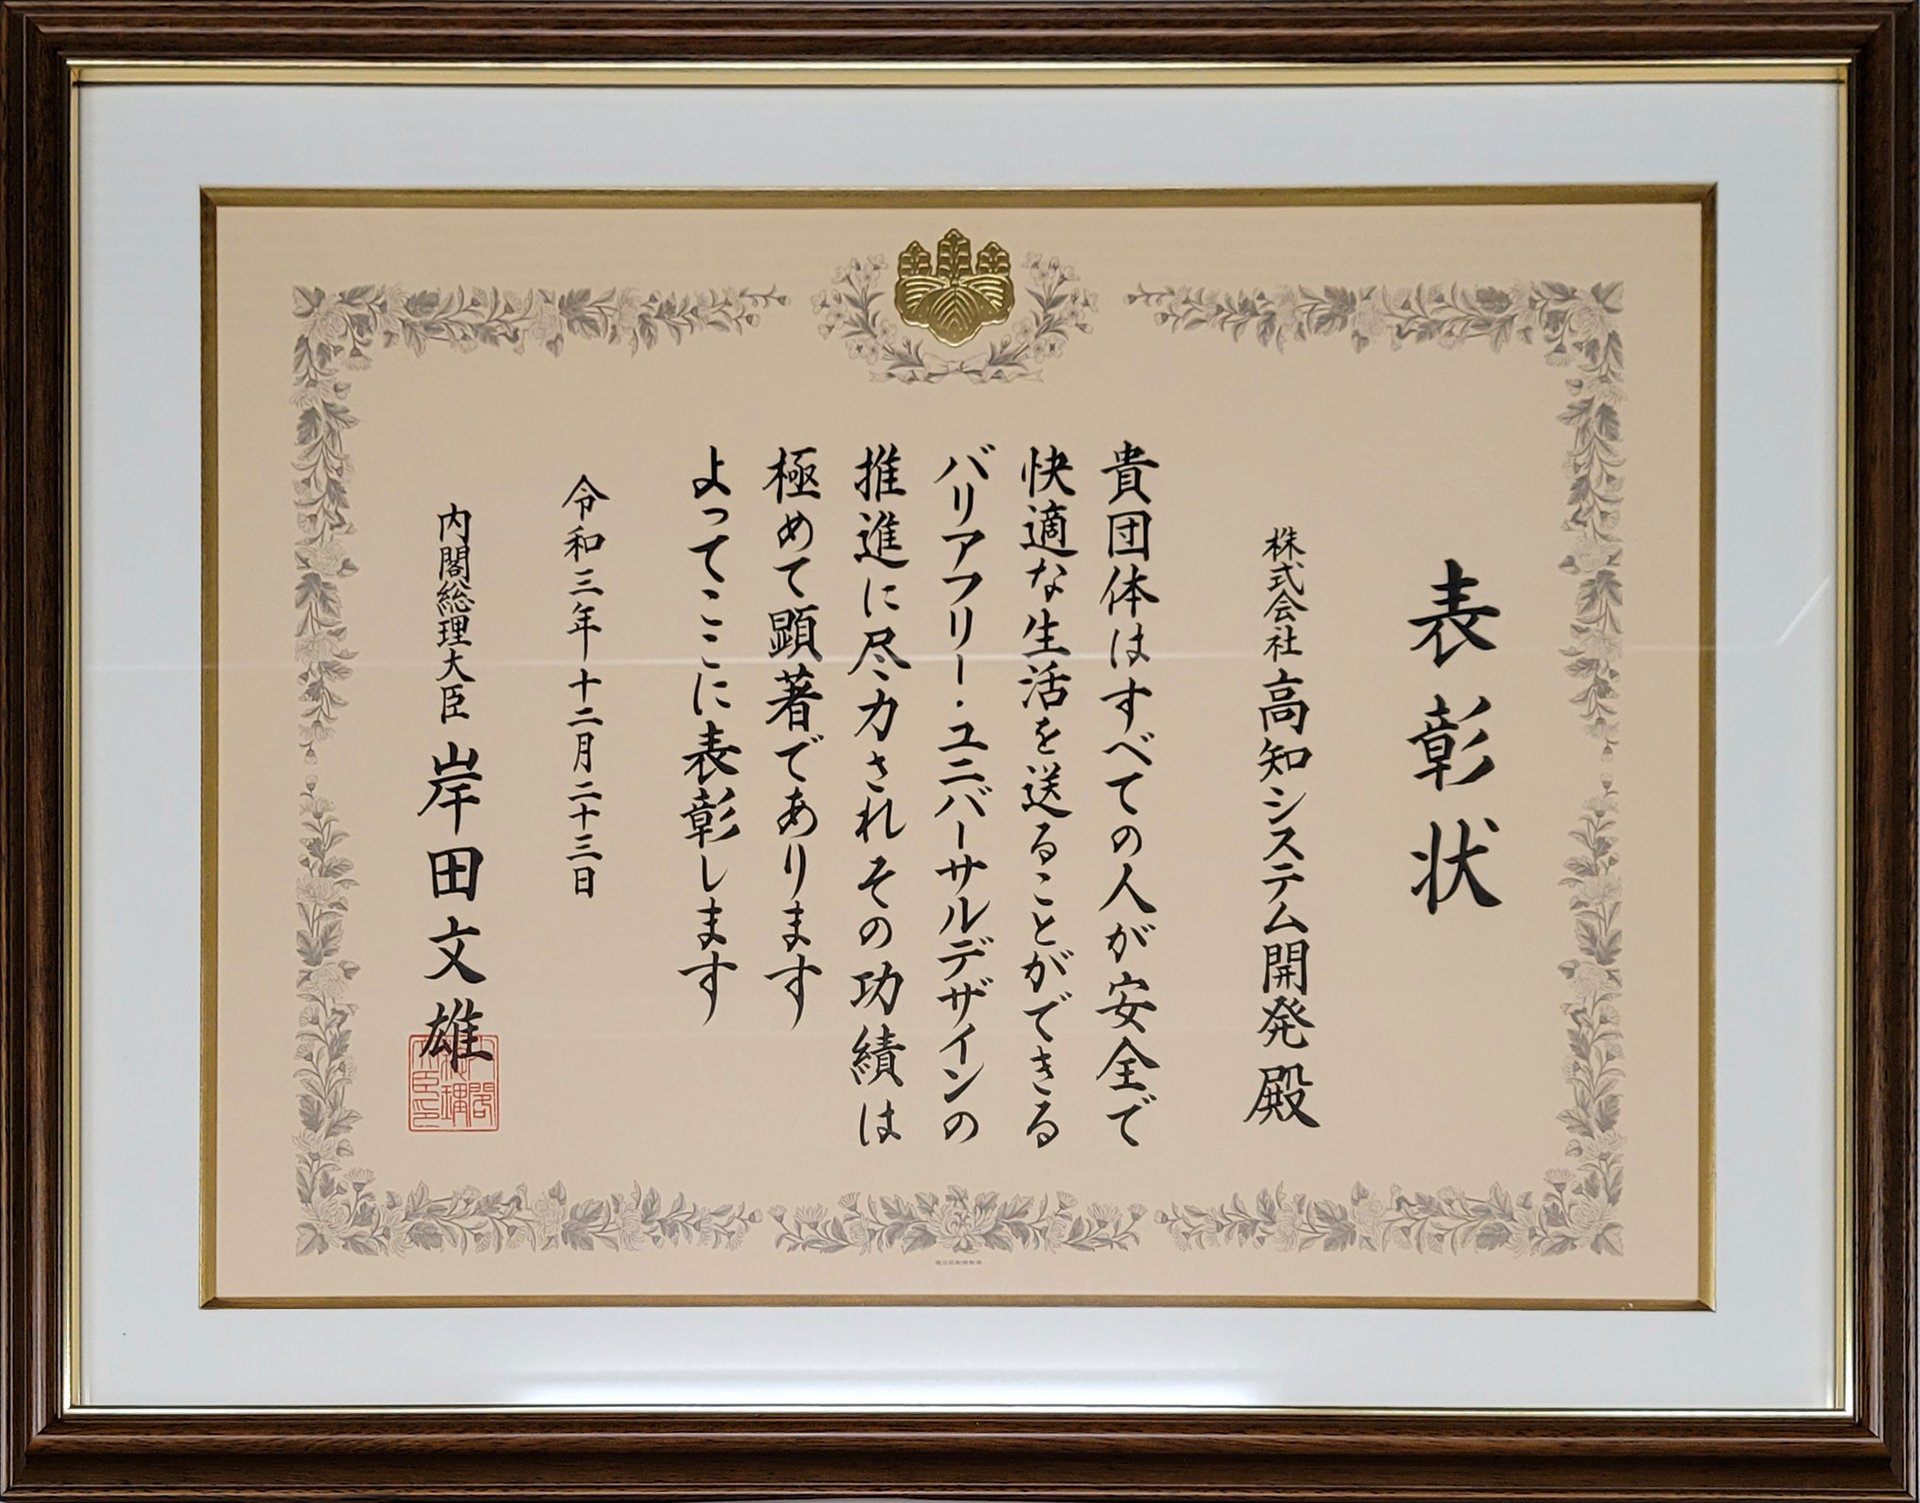 表彰状
株式会社高知システム開発殿
貴団体はすべての人が安全で
快適な生活を送ることができる
バリアフリー・ユニバーサルデザインの
推進に尽力されその功績は
極めて顕著であります
よってここに表彰します
令和三年十二月二十三日
内閣総理大臣 岸田文雄
内閣総理大臣印